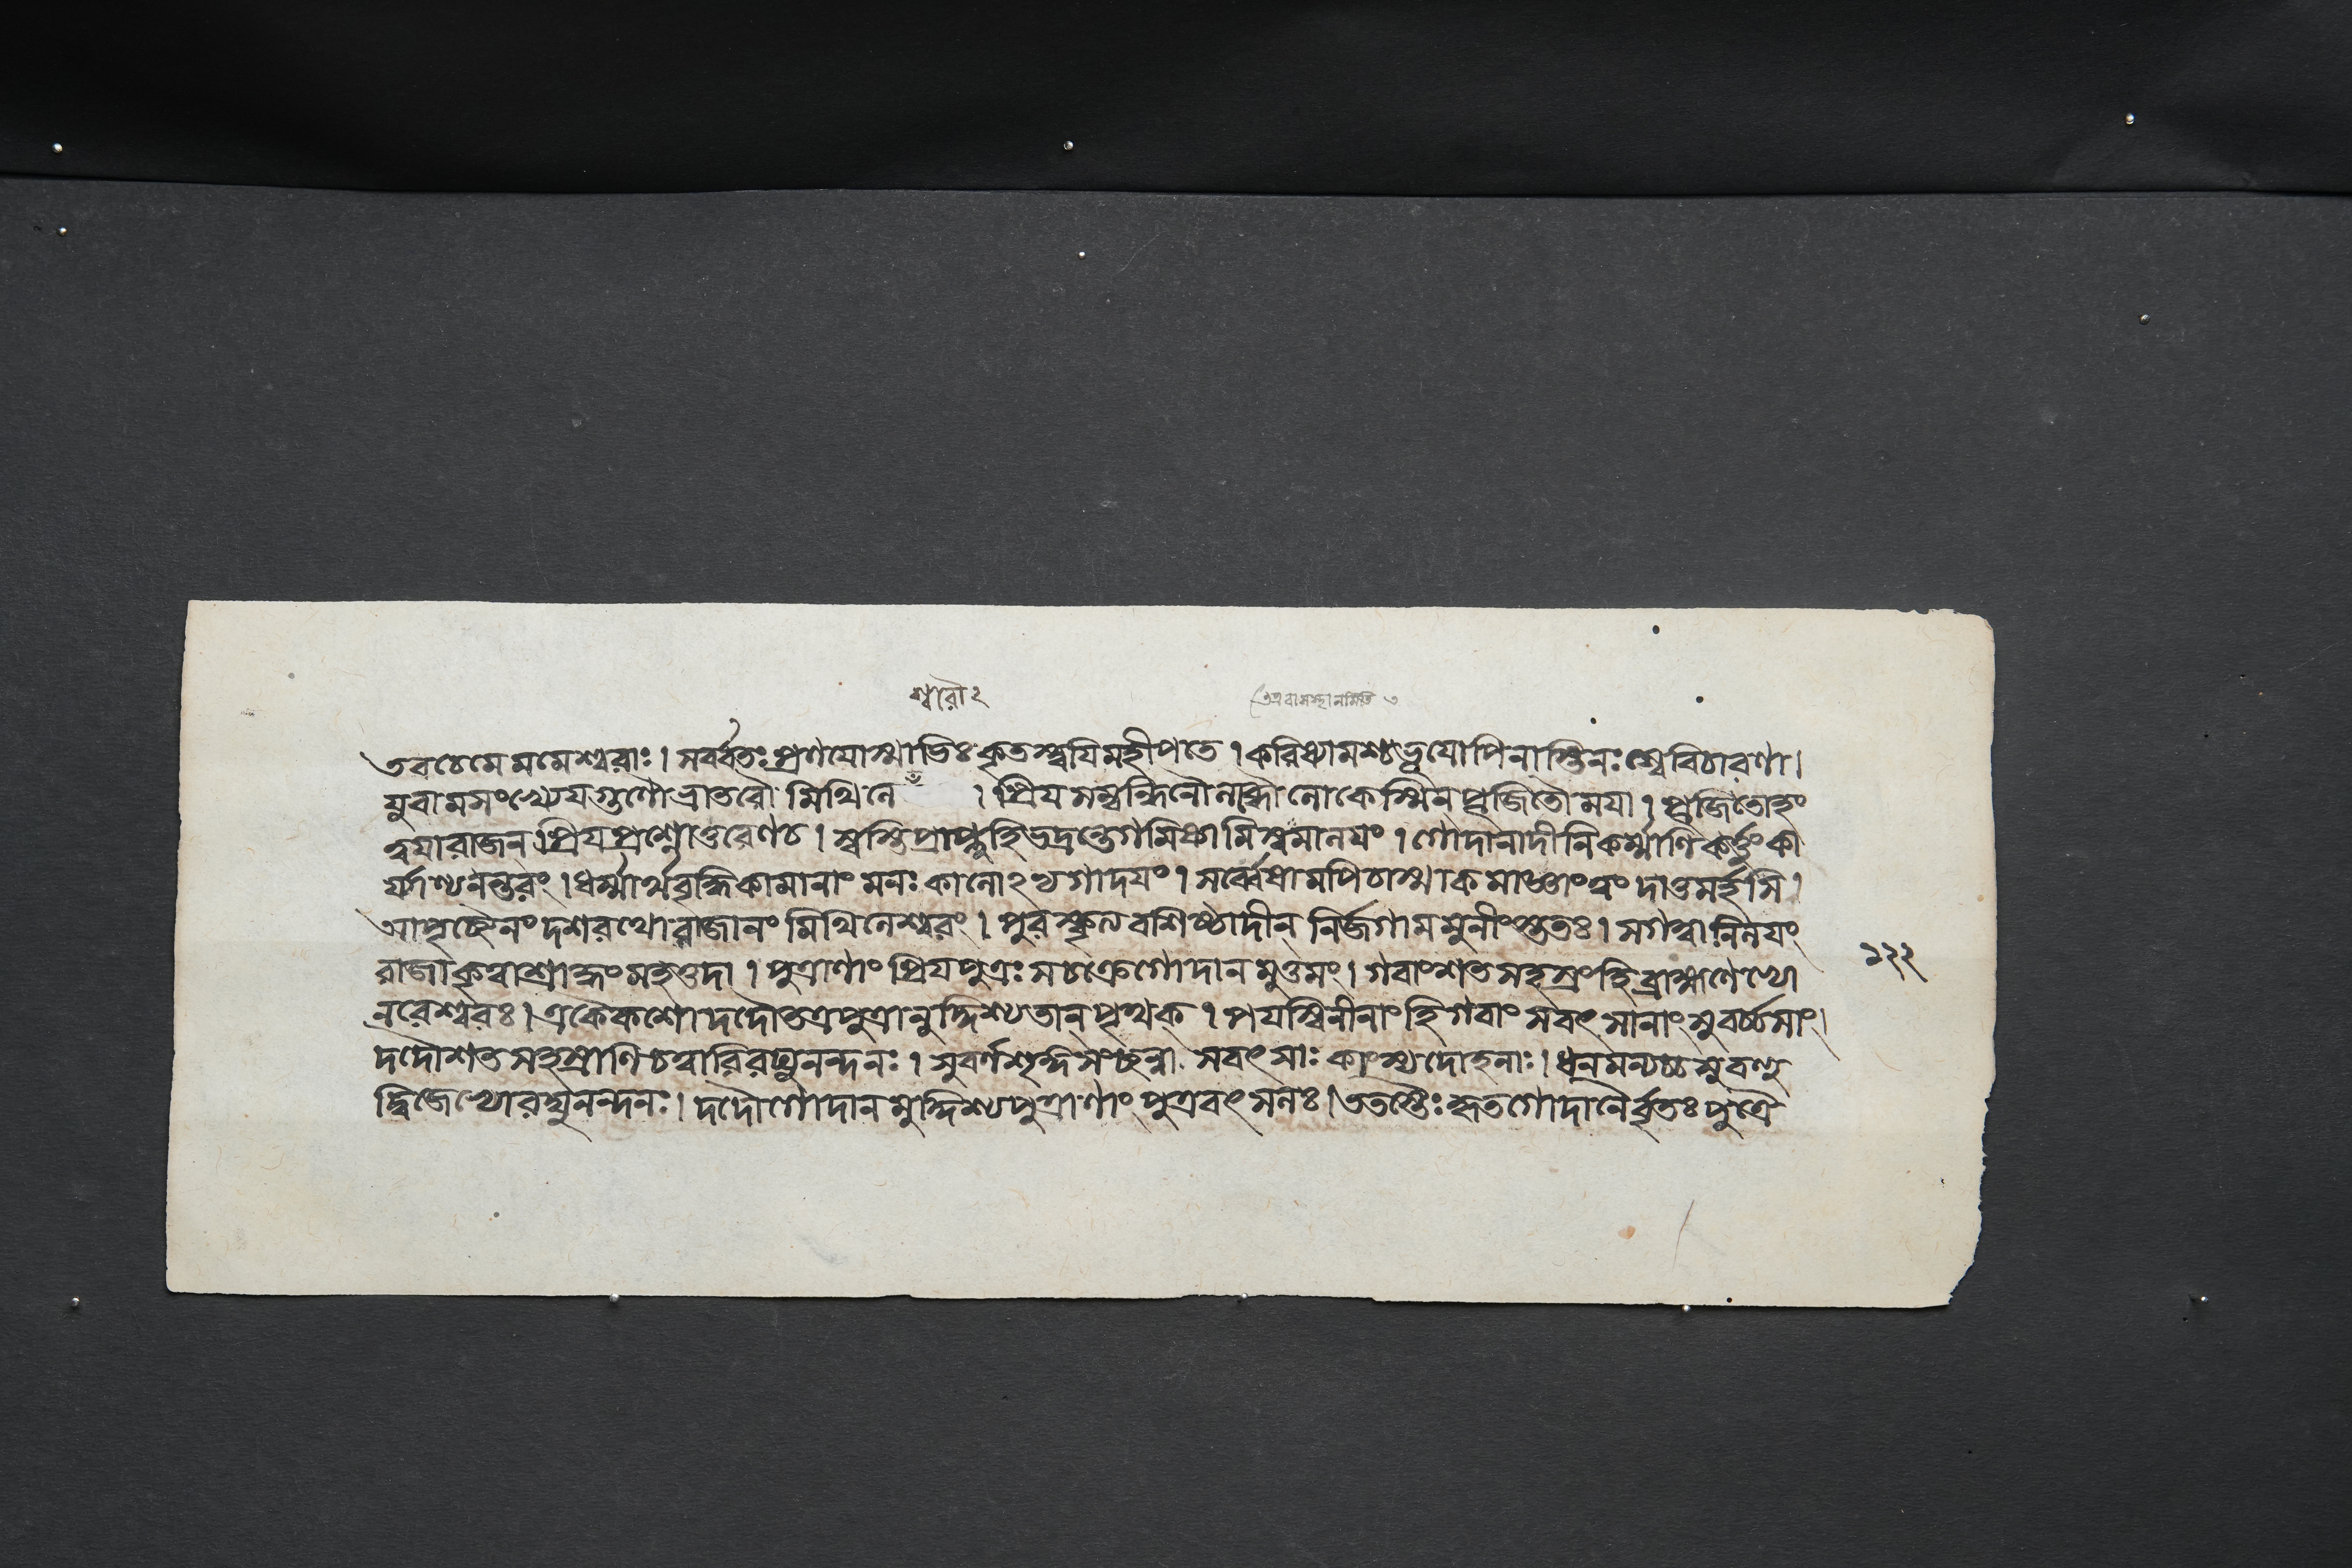 শ্বরৌ ২
তব চেমে মমেশ্বরাঃ। সর্ব্বতঃ প্রণযোস্মাভিঃ কৃতস্ত্বযি মহীপতে । করিষ্যামশ্চ ভূযোপি নাস্তি নঃ শ্বে বিচারণা।
যুবামসংখ্যেযগুণৌ ভ্রাতরৌ মিথিলে । প্রিযসম্বন্ধিনৌ লব্ধৌ লোকেস্মিন্ পূজিতৌ মযা । পূজিতোহং
ত্বযা রাজন্ প্রিযপ্রশ্নোত্তরেণ চ । স্বস্তি প্রাপ্নুহি ভদ্রন্তে গমিষ্যামি স্বমালযং । গোদানাদীনি কর্ম্মাণি কর্ত্তুং কা
র্য্যাণ্যনন্তরং । ধর্ম্মার্থবৃদ্ধিকামানাং মনঃ কালোঽভ্যগাদযং । সর্ব্বেষামপি চাস্মাকমাজ্ঞাং ত্বং দাতুমর্হসি ।
আপৃচ্ছৈনং দশরথো রাজানং মিথিলেশ্বরং । পুরস্কৃত্য বশিষ্ঠাদীন্ নির্জগাম মুনীংস্ততঃ। স গত্বা নিলযং
রাজা কৃত্বা শ্রাদ্ধং মহত্তদা । পুত্রাণাং প্রিযপুত্রঃ স চক্রে গোদানমুত্তমং । গবাং শতসহস্রং হি ব্রাহ্মণেভ্যো
১২২
নরেশ্বরঃ। একৈকশো দদৌ তত্র পুত্রানুদ্দিশ্য তান্ পৃথক্ । পযস্বিনীনাং হি গবাং সবৎসানাং সুবর্চ্চসাং।
দদৌ শতসহস্রাণি চত্বারি রঘুনন্দনঃ । সুবর্ণশৃঙ্গিসংচ্ছন্না সবৎসাঃ কাংস্যদোহনাঃ। ধনমন্যচ্চ সুবহু
দ্বিজেভ্যো রঘুনন্দনঃ। দদৌ গোদানমুদ্দিশ্য পুত্রাণাং পুত্রবৎসলঃ। ততস্তৈঃ কৃতগোদানৈর্বৃতঃ পুত্রৈ